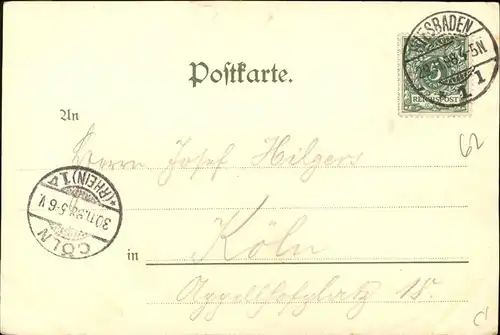 WIESBADEN
4-5N
1 1
REICHSPOST
Postkarte.
62
An
Herrn Josef Hilgers
*(RHEIN)1
30.11.98.5-6.V.
CÖLN
in Köln
Appellhofplatz 15.